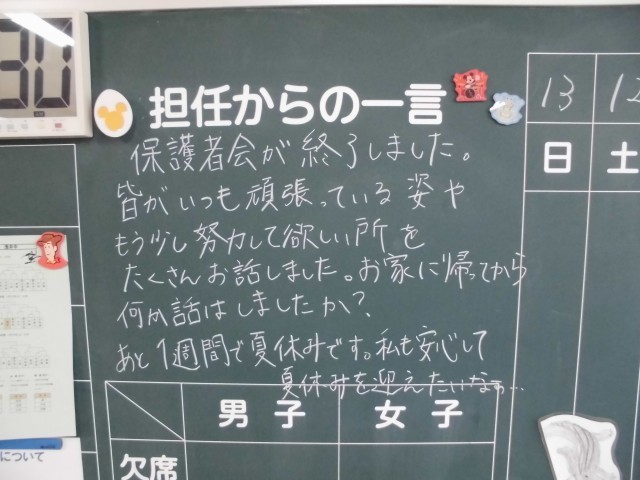 30
担任からの一言
保護者会が終了しました。
皆がいつも頑張っている姿や
もう少し努力して欲しい所を
たくさんお話しました。お家に帰ってから
何か話はしましたか?
あと1週間で夏休みです。私も安心して
夏休みを迎えたいなぁ…
13
日
土
男子
女子
欠席
について